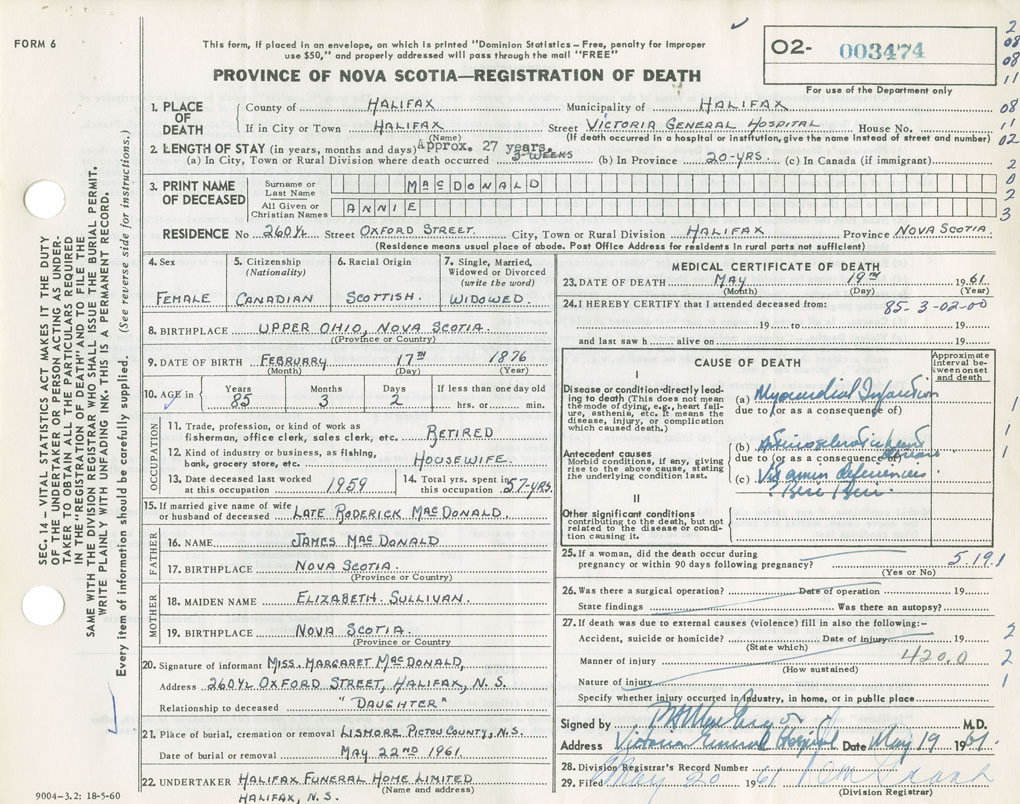 FORM 6
This form, if placed in an envelope, on which is printed "Dominion Statistics – Free, penalty for improper
use $50," and properly addressed will pass through the mail "FREE"
PROVINCE OF NOVA SCOTIA—REGISTRATION OF DEATH
O2- 003474
For use of the Department only
2
08
08
11
08
11
02
2
0
2
3
SEC. 14 – VITAL STATISTICS ACT MAKES IT THE DUTY
OF THE UNDERTAKER OR PERSON ACTING AS UNDER-
TAKER TO OBTAIN ALL THE PARTICULARS REQUIRED
IN THE "REGISTRATION OF DEATH" AND TO FILE THE
SAME WITH THE DIVISION REGISTRAR WHO SHALL ISSUE THE BURIAL PERMIT.
WRITE PLAINLY WITH UNFADING INK. THIS IS A PERMANENT RECORD.
Every item of information should be carefully supplied. (See reverse side for instructions.)
1. PLACE OF DEATH County of HALIFAX Municipality of HALIFAX
If in City or Town HALIFAX Street VICTORIA GENERAL HOSPITAL House No.
(Name) (If death occurred in a hospital or institution, give the name instead of street and number)
2. LENGTH OF STAY (in years, months and days) Approx. 27 years.
(a) In City, Town or Rural Division where death occurred 3-WEEKS (b) In Province 20-YRS. (c) In Canada (if immigrant)
3. PRINT NAME OF DECEASED Surname or Last Name MACDONALD
All Given or Christian Names ANNIE
RESIDENCE No 260½ Street OXFORD STREET. City, Town or Rural Division HALIFAX Province NOVA SCOTIA.
(Residence means usual place of abode. Post Office Address for residents in rural parts not sufficient)
4. Sex FEMALE
5. Citizenship (Nationality) CANADIAN
6. Racial Origin SCOTTISH.
7. Single, Married, Widowed or Divorced (write the word) WIDOWED.
8. BIRTHPLACE UPPER OHIO, NOVA SCOTIA.
(Province or Country)
9. DATE OF BIRTH FEBRUARY 17TH 1876
(Month) (Day) (Year)
10. AGE in Years 85 Months 3 Days 2 If less than one day old
hrs. or min.
OCCUPATION
11. Trade, profession, or kind of work as
fisherman, office clerk, sales clerk, etc. RETIRED
12. Kind of industry or business, as fishing,
bank, grocery store, etc. HOUSEWIFE.
13. Date deceased last worked
at this occupation 1959
14. Total yrs. spent in
this occupation 57-YRS.
15. If married give name of wife
or husband of deceased LATE RODERICK MACDONALD.
FATHER
16. NAME JAMES MACDONALD
17. BIRTHPLACE NOVA SCOTIA.
(Province or Country)
MOTHER
18. MAIDEN NAME ELIZABETH SULLIVAN.
19. BIRTHPLACE NOVA SCOTIA.
(Province or Country
20. Signature of informant MISS. MARGARET MACDONALD,
Address 260½ OXFORD STREET, HALIFAX, N.S.
Relationship to deceased "DAUGHTER"
21. Place of burial, cremation or removal LISMORE PICTOU COUNTY, N.S.
Date of burial or removal MAY 22ND 1961.
22. UNDERTAKER HALIFAX FUNERAL HOME LIMITED
(Name and address)
HALIFAX, N.S.
9004-3.2: 18-5-60
MEDICAL CERTIFICATE OF DEATH
23. DATE OF DEATH MAY 19TH 1961.
(Month) (Day) (Year)
24. I HEREBY CERTIFY that I attended deceased from: 85-3-02-00
19 to 19
and last saw h alive on 19
CAUSE OF DEATH
Approximate interval between onset and death
I
Disease or condition directly lead-
ing to death (This does not mean
the mode of dying, e.g., heart fail-
ure, asthenia, etc. It means the
disease, injury, or complication
which caused death.)
(a) Myocardial Infarction
due to (or as a consequence of)
Antecedent causes
Morbid conditions, if any, giving
rise to the above cause, stating
the underlying condition last.
(b) Arteriosclerotic heart disease
due to (or as a consequence of)
(c) Vitamin deficiencies
? Beri Beri
II
Other significant conditions
contributing to the death, but not
related to the disease or condi-
tion causing it.
1
1
1
25. If a woman, did the death occur during
pregnancy or within 90 days following pregnancy? 5.19.1
(Yes or No)
26. Was there a surgical operation? Date of operation 19
State findings Was there an autopsy?
27. If death was due to external causes (violence) fill in also the following:-
Accident, suicide or homicide? Date of injury 19 2
(State which)
Manner of injury 420.0 2
(How sustained)
Nature of injury 1
Specify whether injury occurred in industry, in home, or in public place
Signed by M.D.
Address Victoria General Hospital Date May 19 1961.
28. Division Registrar's Record Number
29. Filed May 20 1961
(Division Registrar)